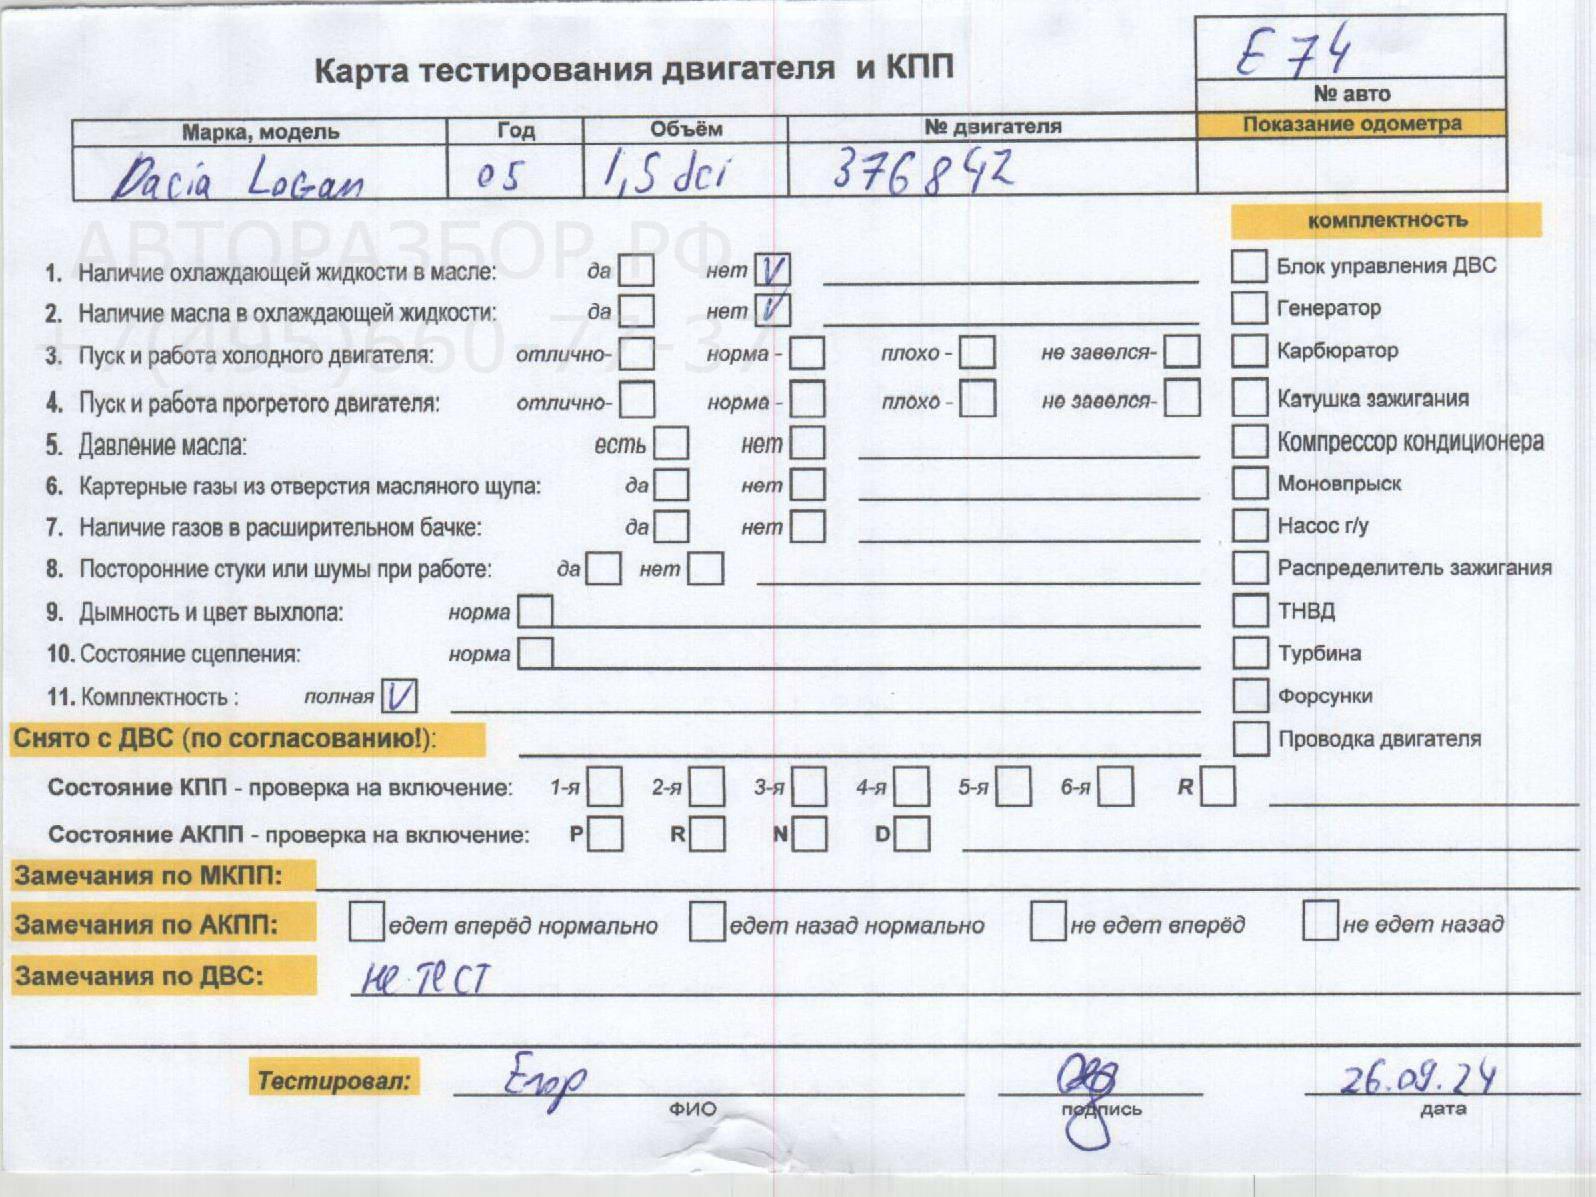 Карта тестирования двигателя и КПП
E 74
№ авто
Марка, модель Год Объём № двигателя Показание одометра
Dacia Logan 05 1,5 dci 376842
АВТОРАЗБОР.РФ
+7(495)660-77-37
комплектность
1. Наличие охлаждающей жидкости в масле: да нет V
Блок управления ДВС
2. Наличие масла в охлаждающей жидкости: да нет V
Генератор
3. Пуск и работа холодного двигателя: отлично- норма - плохо - не завелся-
Карбюратор
4. Пуск и работа прогретого двигателя: отлично- норма - плохо - не завелся-
Катушка зажигания
5. Давление масла: есть нет
Компрессор кондиционера
6. Картерные газы из отверстия масляного щупа: да нет
Моновпрыск
7. Наличие газов в расширительном бачке: да нет
Насос г/у
8. Посторонние стуки или шумы при работе: да нет
Распределитель зажигания
9. Дымность и цвет выхлопа: норма
ТНВД
10. Состояние сцепления: норма
Турбина
11. Комплектность : полная V
Форсунки
Снято с ДВС (по согласованию!):
Проводка двигателя
Состояние КПП - проверка на включение: 1-я 2-я 3-я 4-я 5-я 6-я R
Состояние АКПП - проверка на включение: P R N D
Замечания по МКПП:
Замечания по АКПП: едет вперёд нормально едет назад нормально не едет вперёд не едет назад
Замечания по ДВС: не тест
Тестировал: Егор 26.09.24
ФИО подпись дата